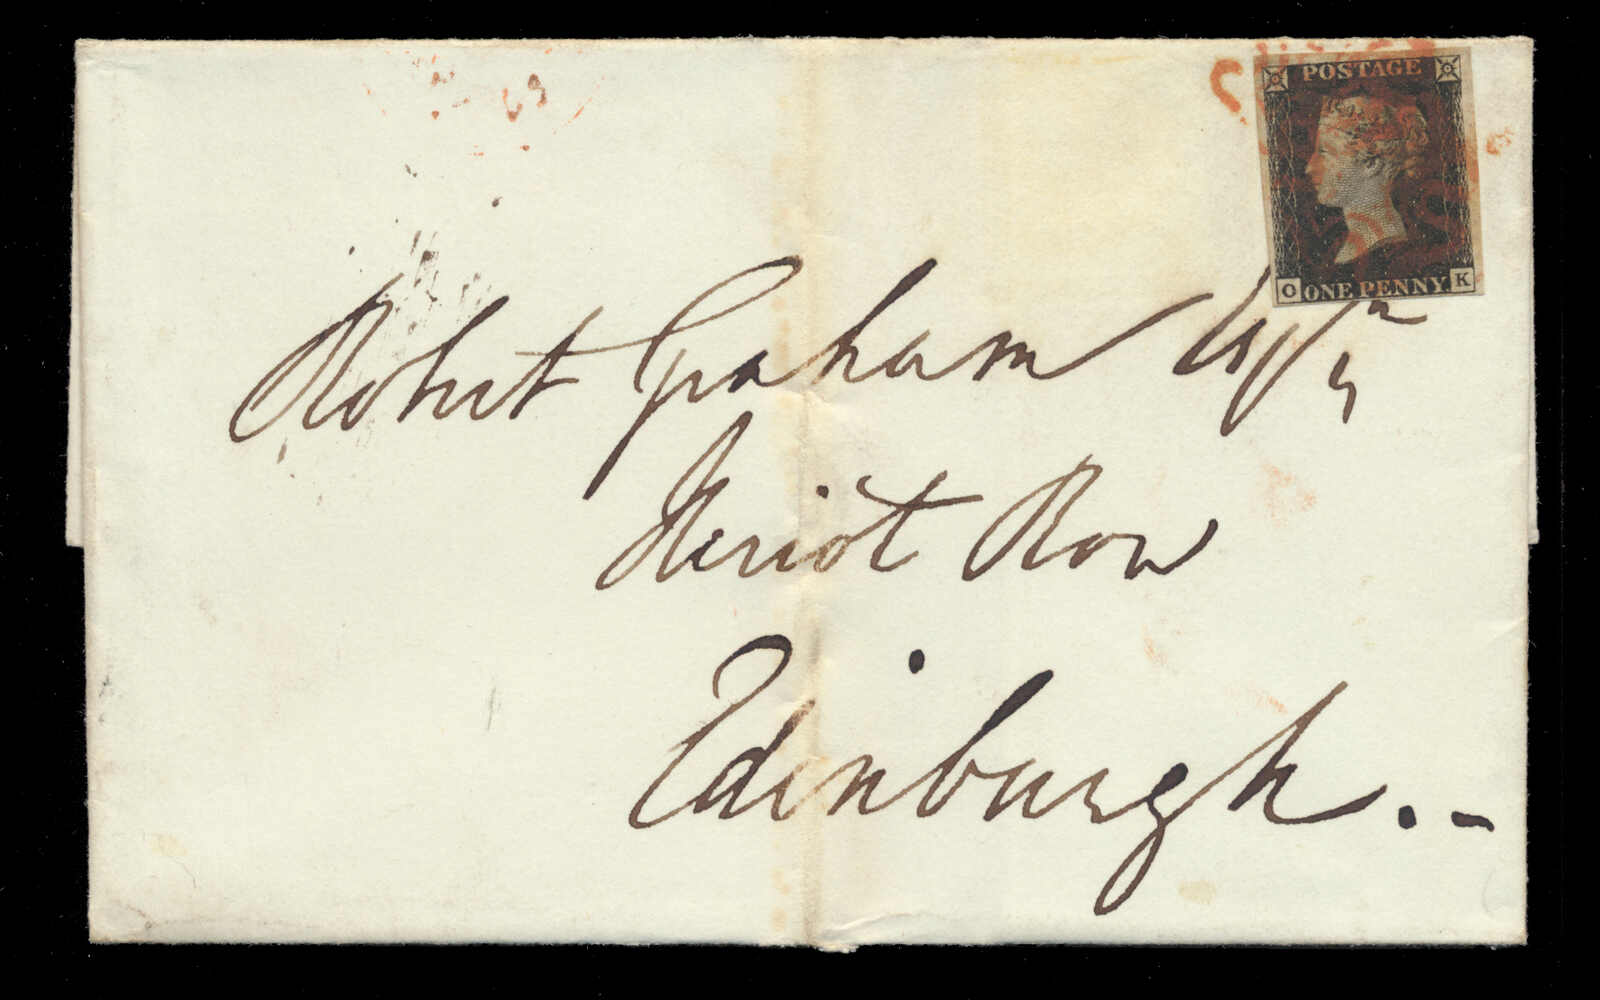 POSTAGE
O ONE PENNY K
Robert Graham Esqr
Heriot Row
Edinburgh . -